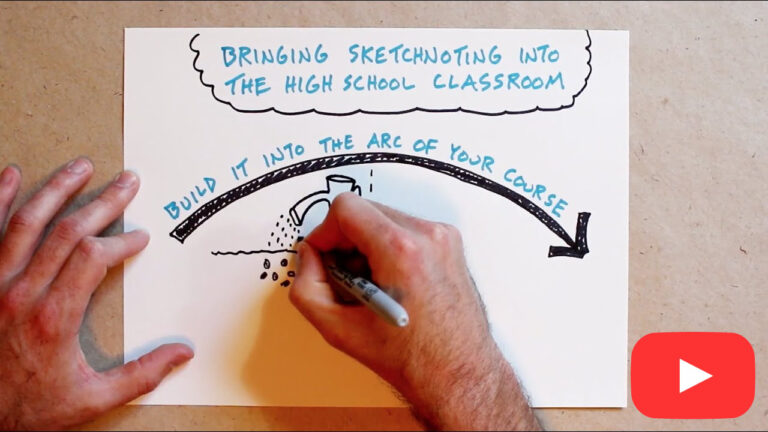 BRINGING SKETCHNOTING INTO
THE HIGH SCHOOL CLASSROOM
BUILD IT INTO THE ARC OF YOUR COURSE